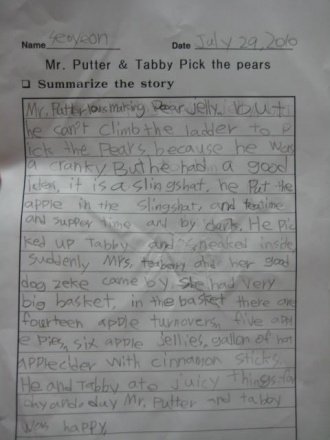 Name Seoyeon Date July 29, 2010
Mr. Putter & Tabby Pick the pears
❑ Summarize the story
Mr. Putter was making Pear Jelly. but
he can't climb the ladder to P
ick the Pears because he was
a cranky But he had a good
idea, it is a slingshat, he Put the
apple in the slingshat, and teatime
and supper time and by dark. He pic
ked up Tabby and sneaked inside
suddenly Mrs. and her good
dog zeke came by. She had very
big basket, in the basket there are
fourteen apple turnovers, five app
e pies, six apple Jellies, gallon of
apple cider with cinnamon sticks.
He and Tabby ate Juicy things for
day and day Mr. Putter and tabby
was happy